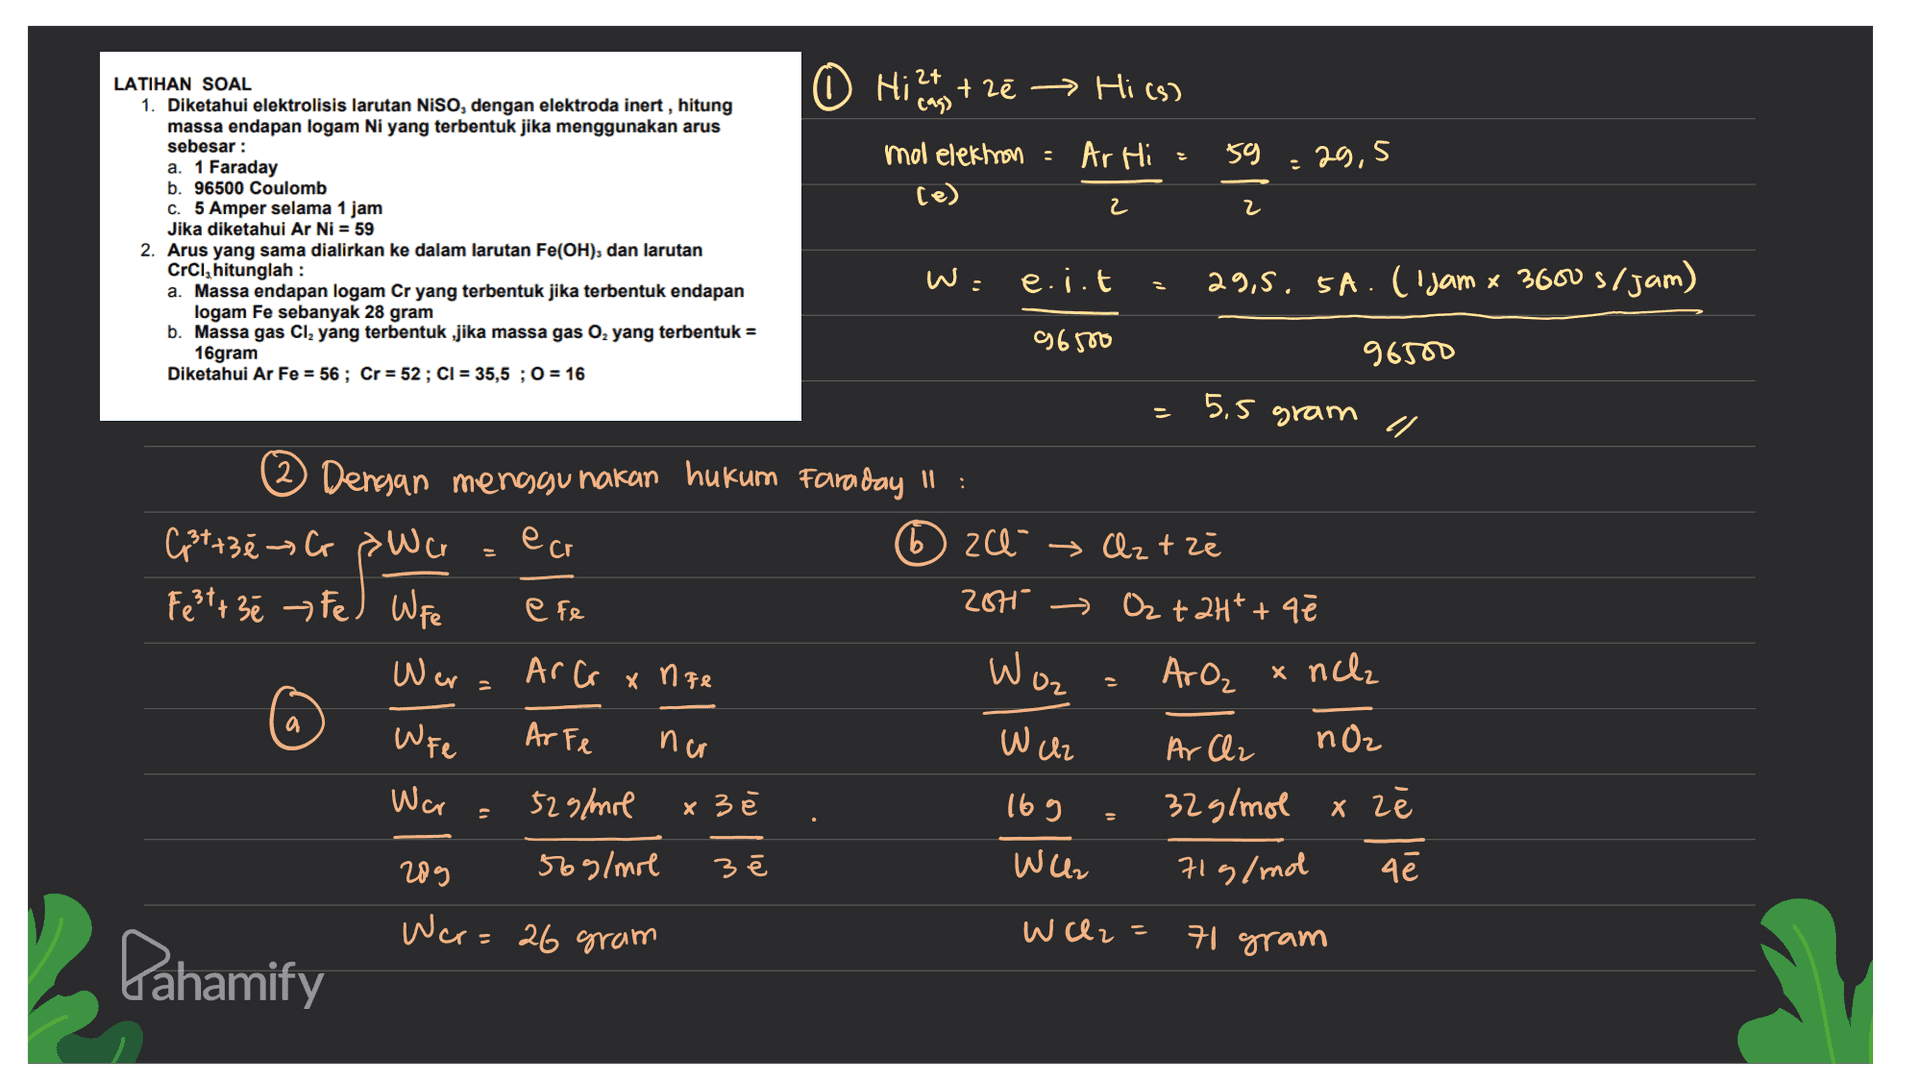 LATIHAN SOAL
1. Diketahui elektrolisis larutan NiSO₃ dengan elektroda inert , hitung
massa endapan logam Ni yang terbentuk jika menggunakan arus
sebesar :
a. 1 Faraday
b. 96500 Coulomb
c. 5 Amper selama 1 jam
Jika diketahui Ar Ni = 59
2. Arus yang sama dialirkan ke dalam larutan Fe(OH)₃ dan larutan
CrCl₃ hitunglah :
a. Massa endapan logam Cr yang terbentuk jika terbentuk endapan
logam Fe sebanyak 28 gram
b. Massa gas Cl₂ yang terbentuk ,jika massa gas O₂ yang terbentuk =
16gram
Diketahui Ar Fe = 56 ; Cr = 52 ; Cl = 35,5 ; O = 16
① Ni²⁺(aq) + 2ē → Ni (s)
mol elektron (e) = Ar Ni / 2 = 59 / 2 = 29,5
W = e.i.t / 96500 = 29,5. 5A. (1 Jam x 3600 s/jam) / 96500
= 5,5 gram //
② Dengan menggunakan hukum Faraday II :
Cr³⁺+3ē → Cr
Fe³⁺+3ē → Fe
W Cr / W Fe = e Cr / e Fe
ⓐ W Cr / W Fe = Ar Cr / Ar Fe x n Fe / n Cr
W Cr / 28g = 52 g/mol / 56 g/mol x 3ē / 3ē .
W Cr = 26 gram
ⓑ 2Cl⁻ → Cl₂ + 2ē
2OH⁻ → O₂ + 2H⁺ + 4ē
W O₂ / W Cl₂ = Ar O₂ / Ar Cl₂ x nCl₂ / nO₂
16 g / W Cl₂ = 32 g/mol / 71 g/mol x 2ē / 4ē
W Cl₂ = 71 gram
Pahamify